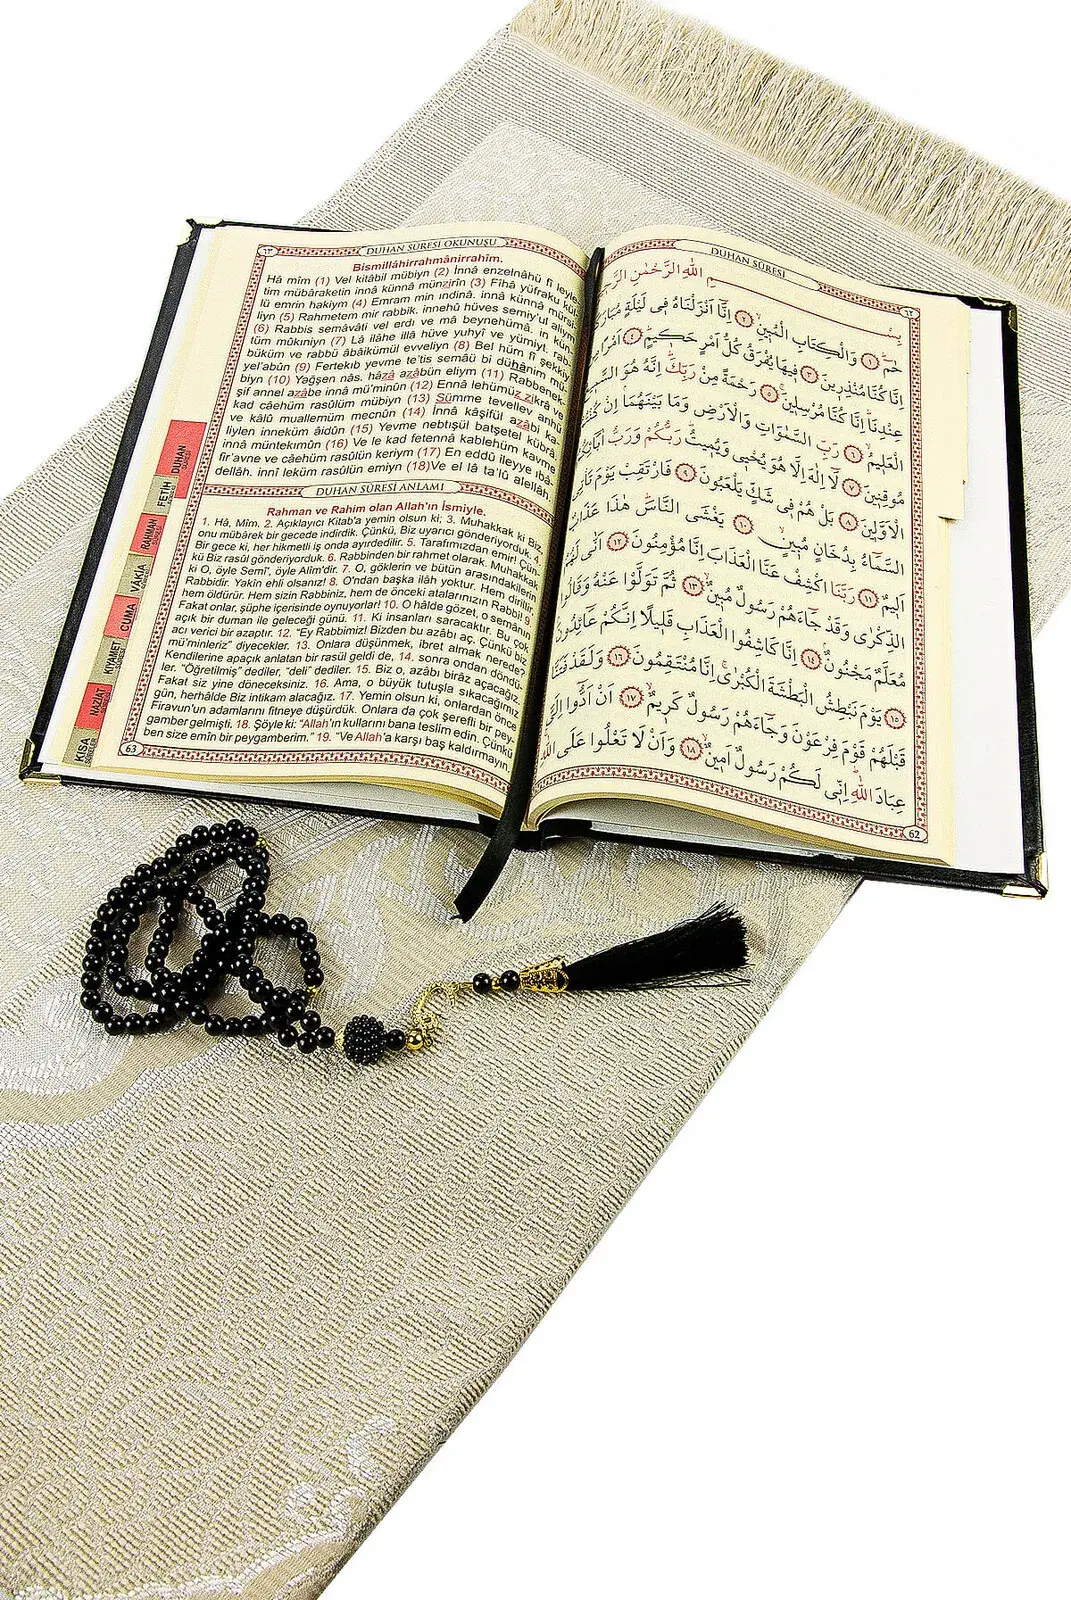 ٦٣
DUHAN SÛRESİ OKUNUŞU
Bismillâhirrahmânirrahîm.
Hâ mîm (1) Vel kitâbil mübiyn (2) İnnâ enzelnâhü fî leyle-
tim mübâraketin innâ künnâ münzirîn (3) Fîhâ yüfraku kül-
lü emrin hakiym (4) Emram min ındinâ. innâ künnâ mürsi-
liyn (5) Rahmetem mir rabbik. innehû hüves semiy'ul aliym
(6) Rabbis semâvâti vel erdı ve mâ beynehümâ. in kün-
tüm mûkıniyn (7) Lâ ilâhe illâ hüve yuhyî ve yümiyt. rab-
büküm ve rabbü âbâikümül evveliyn (8) Bel hüm fî şekkiy
yel'abûn (9) Fertekıb yevme te'tis semâü bi dühânim mü-
biyn (10) Yağşen nâs. hâzâ azâbün eliym (11) Rabbenek-
şif annel azâbe innâ mü'minûn (12) Ennâ lehümüz zikrâ ve
kad câehüm rasûlüm mübiyn (13) Sümme tevellev anhü
ve kâlû muallemüm mecnûn (14) İnnâ kâşifül azâbi ka-
liylen inneküm âidûn (15) Yevme nebtışül batşetel kübrâ.
innâ müntekımûn (16) Ve le kad fetennâ kablehüm kavme
fir'avne ve câehüm rasûlün keriym (17) En eddû ileyye ıbâ-
dellâh. innî leküm rasûlün emiyn (18)Ve el lâ ta'lû alellâh.
DUHAN SÛRESİ ANLAMI
Rahman ve Rahim olan Allah'ın İsmiyle.
1. Hâ, Mîm. 2. Açıklayıcı Kitab'a yemin olsun ki; 3. Muhakkak ki Biz,
onu mübârek bir gecede indirdik. Çünkü, Biz uyarıcı gönderiyorduk. 4.
Bir gece ki, her hikmetli iş onda ayırdedilir. 5. Tarafımızdan emir! Çün-
kü Biz rasûl gönderiyorduk. 6. Rabbinden bir rahmet olarak. Muhakkak
ki O, öyle Semî', öyle Alîm'dir. 7. O, göklerin ve bütün arasındakilerin
Rabbidir. Yakîn ehli olsanız! 8. O'ndan başka ilâh yoktur. Hem diriltir,
hem öldürür. Hem sizin Rabbiniz, hem de önceki atalarınızın Rabbi! 9.
Fakat onlar, şüphe içerisinde oynuyorlar! 10. O hâlde gözet, o semânın
açık bir duman ile geleceği günü. 11. Ki insanları saracaktır. Bu çok
acı verici bir azaptır. 12. "Ey Rabbimiz! Bizden bu azâbı aç. Çünkü biz
mü'minleriz" diyecekler. 13. Onlara düşünmek, ibret almak nerede?
Kendilerine apaçık anlatan bir rasül geldi de, 14. sonra ondan döndü-
ler. "Öğretilmiş" dediler, "deli" dediler. 15. Biz o, azâbı birâz açacağız.
Fakat siz yine döneceksiniz. 16. Ama, o büyük tutuşla sıkacağımız
gün, herhâlde Biz intikam alacağız. 17. Yemin olsun ki, onlardan önce
Firavun'un adamlarını fitneye düşürdük. Onlara da çok şerefli bir pey-
gamber gelmişti. 18. Şöyle ki: "Allah'ın kullarını bana teslim edin. Çünkü
ben size emîn bir peygamberim." 19. "Ve Allah'a karşı baş kaldırmayın.
63
DUHAN
FETİH
RAHMAN
VÂKIA
CUMA
KIYAMET
NAZİAT
KISA
٦٢
DUHAN SÛRESİ
بِسْمِ اللّٰهِ الرَّحْمٰنِ
حٰمٓ ﴿١﴾ وَالْكِتَابِ الْمُبٖينِ ﴿٢﴾ اِنَّٓا اَنْزَلْنَاهُ فٖي لَيْلَةٍ
اِنَّا كُنَّا مُنْذِرٖينَ ﴿٣﴾ فٖيهَا يُفْرَقُ كُلُّ اَمْرٍ حَكٖيمٍ ﴿٤﴾
عِنْدِنَا اِنَّا كُنَّا مُرْسِلٖينَ ﴿٥﴾ رَحْمَةً مِنْ رَبِّكَ اِنَّهُ هُوَ
الْعَلٖيمُ ﴿٦﴾ رَبِّ السَّمٰوَاتِ وَالْاَرْضِ وَمَا بَيْنَهُمَا اِنْ
مُوقِنٖينَ ﴿٧﴾ لَٓا اِلٰهَ اِلَّا هُوَ يُحْيٖي وَيُمٖيتُ رَبُّكُمْ وَرَبُّ
الْاَوَّلٖينَ ﴿٨﴾ بَلْ هُمْ فٖي شَكٍّ يَلْعَبُونَ ﴿٩﴾ فَارْتَقِبْ يَوْمَ
السَّمَٓاءُ بِدُخَانٍ مُبٖينٍ ﴿١٠﴾ يَغْشَى النَّاسَ هٰذَا عَذَابٌ
اَلٖيمٌ ﴿١١﴾ رَبَّنَا اكْشِفْ عَنَّا الْعَذَابَ اِنَّا مُؤْمِنُونَ ﴿١٢﴾ اَنّٰى
الذِّكْرٰى وَقَدْ جَٓاءَهُمْ رَسُولٌ مُبٖينٌ ﴿١٣﴾ ثُمَّ تَوَلَّوْا عَنْهُ وَقَالُوا
مُعَلَّمٌ مَجْنُونٌ ﴿١٤﴾ اِنَّا كَاشِفُوا الْعَذَابِ قَلٖيلًا اِنَّكُمْ عَٓائِدُونَ
﴿١٥﴾ يَوْمَ نَبْطِشُ الْبَطْشَةَ الْكُبْرٰى اِنَّا مُنْتَقِمُونَ ﴿١٦﴾ وَلَقَدْ فَتَنَّا
قَبْلَهُمْ قَوْمَ فِرْعَوْنَ وَجَٓاءَهُمْ رَسُولٌ كَرٖيمٌ ﴿١٧﴾ اَنْ اَدُّٓوا
عِبَادَ اللّٰهِ اِنّٖي لَكُمْ رَسُولٌ اَمٖينٌ ﴿١٨﴾ وَاَنْ لَا تَعْلُوا عَلَى اللّٰهِ
62